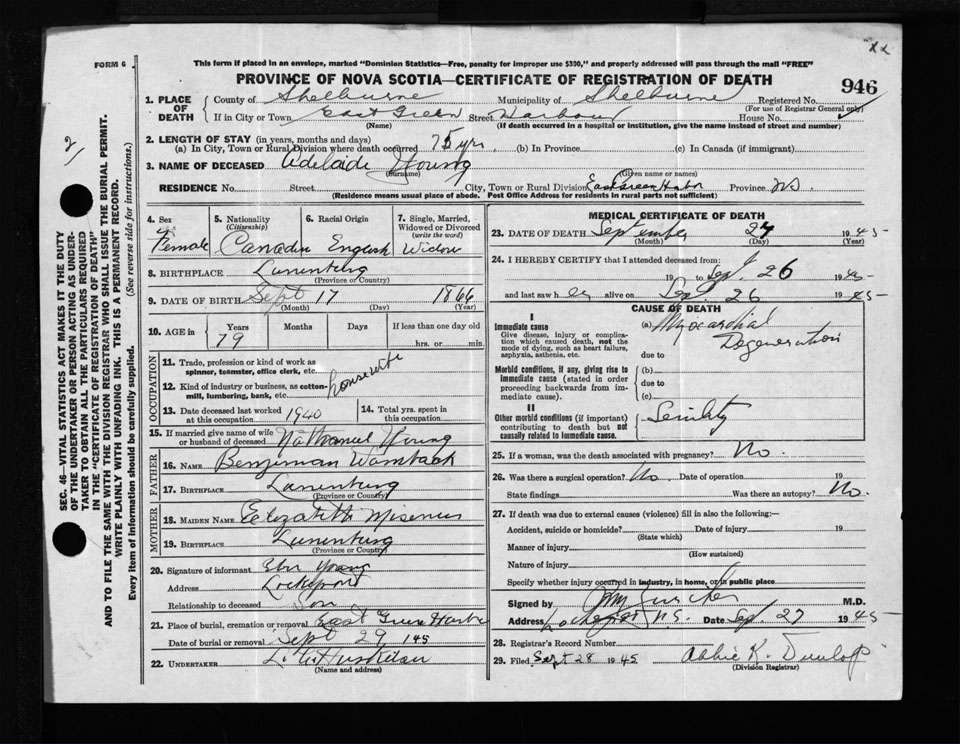 xx
FORM 6
This form if placed in an envelope, marked "Dominion Statistics—Free, penalty for improper use $300," and properly addressed will pass through the mail "FREE"
PROVINCE OF NOVA SCOTIA—CERTIFICATE OF REGISTRATION OF DEATH
946
1. PLACE OF DEATH County of Shelburne Municipality of Shelburne Registered No.
(For use of Registrar General only)
If in City or Town East Green Street Harbour House No.
(Name) (If death occurred in a hospital or institution, give the name instead of street and number)
2. LENGTH OF STAY (in years, months and days)
(a) In City, Town or Rural Division where death occurred 75 yrs (b) In Province (c) In Canada (if immigrant)
3. NAME OF DECEASED Adelaide Young
(Surname) (Given name or names)
RESIDENCE No. Street City, Town or Rural Division East Green Habr Province NS.
(Residence means usual place of abode. Post Office Address for residents in rural parts not sufficient)
2/
SEC. 46—VITAL STATISTICS ACT MAKES IT THE DUTY
OF THE UNDERTAKER OR PERSON ACTING AS UNDER-
TAKER TO OBTAIN ALL THE PARTICULARS REQUIRED
IN THE "CERTIFICATE OF REGISTRATION OF DEATH"
AND TO FILE THE SAME WITH THE DIVISION REGISTRAR WHO SHALL ISSUE THE BURIAL PERMIT.
WRITE PLAINLY WITH UNFADING INK. THIS IS A PERMANENT RECORD.
Every item of information should be carefully supplied. (See reverse side for instructions.)
4. Sex
Female
5. Nationality
(Citizenship)
Canadian
6. Racial Origin
English
7. Single, Married,
Widowed or Divorced
(write the word)
Widow
8. BIRTHPLACE Lunenburg
(Province or Country)
9. DATE OF BIRTH Sept 17 1866
(Month) (Day) (Year)
10. AGE in Years Months Days If less than one day old
79 hrs. or min.
OCCUPATION
11. Trade, profession or kind of work as
spinner, teamster, office clerk, etc.
12. Kind of industry or business, as cotton-
mill, lumbering, bank, etc.
housewife
13. Date deceased last worked
at this occupation 1940
14. Total yrs. spent in
this occupation
15. If married give name of wife
or husband of deceased Nathaniel Young
FATHER
16. NAME Benjiman Wambach
17. BIRTHPLACE Lunenburg
(Province or Country)
MOTHER
18. MAIDEN NAME Elizabeth
19. BIRTHPLACE Lunenburg
(Province or Country)
20. Signature of informant Eber Young
Address Lockeport
Relationship to deceased Son
21. Place of burial, cremation or removal East Green Harbr
Date of burial or removal Sept 29 1945
22. UNDERTAKER
(Name and address)
MEDICAL CERTIFICATE OF DEATH
23. DATE OF DEATH September 27 1945
(Month) (Day) (Year)
24. I HEREBY CERTIFY that I attended deceased from:
19 to Sept 26 1945
and last saw her alive on Sep. 26 1945
CAUSE OF DEATH
I
Immediate cause
Give disease, injury or complica-
tion which caused death, not the
mode of dying, such as heart failure,
asphyxia, asthenia, etc.
(a) Myocardial
Degeneration
due to
Morbid conditions, if any, giving rise to
immediate cause (stated in order
proceeding backwards from im-
mediate cause).
(b)
due to
(c)
II
Other morbid conditions (if important)
contributing to death but not
causally related to immediate cause.
Senility
25. If a woman, was the death associated with pregnancy? No.
26. Was there a surgical operation? No. Date of operation 19
State findings Was there an autopsy? No.
27. If death was due to external causes (violence) fill in also the following:—
Accident, suicide or homicide? Date of injury 19
(State which)
Manner of injury
(How sustained)
Nature of injury
Specify whether injury occurred in industry, in home, or in public place
Signed by M.D.
Address Lockeport N.S. Date Sep. 27 1945
28. Registrar's Record Number
29. Filed Sept 28 1945 Abbie K. Dunlop
(Division Registrar)